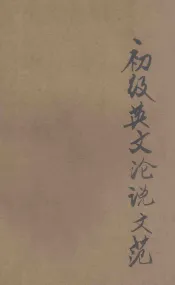 初级英文论说文范